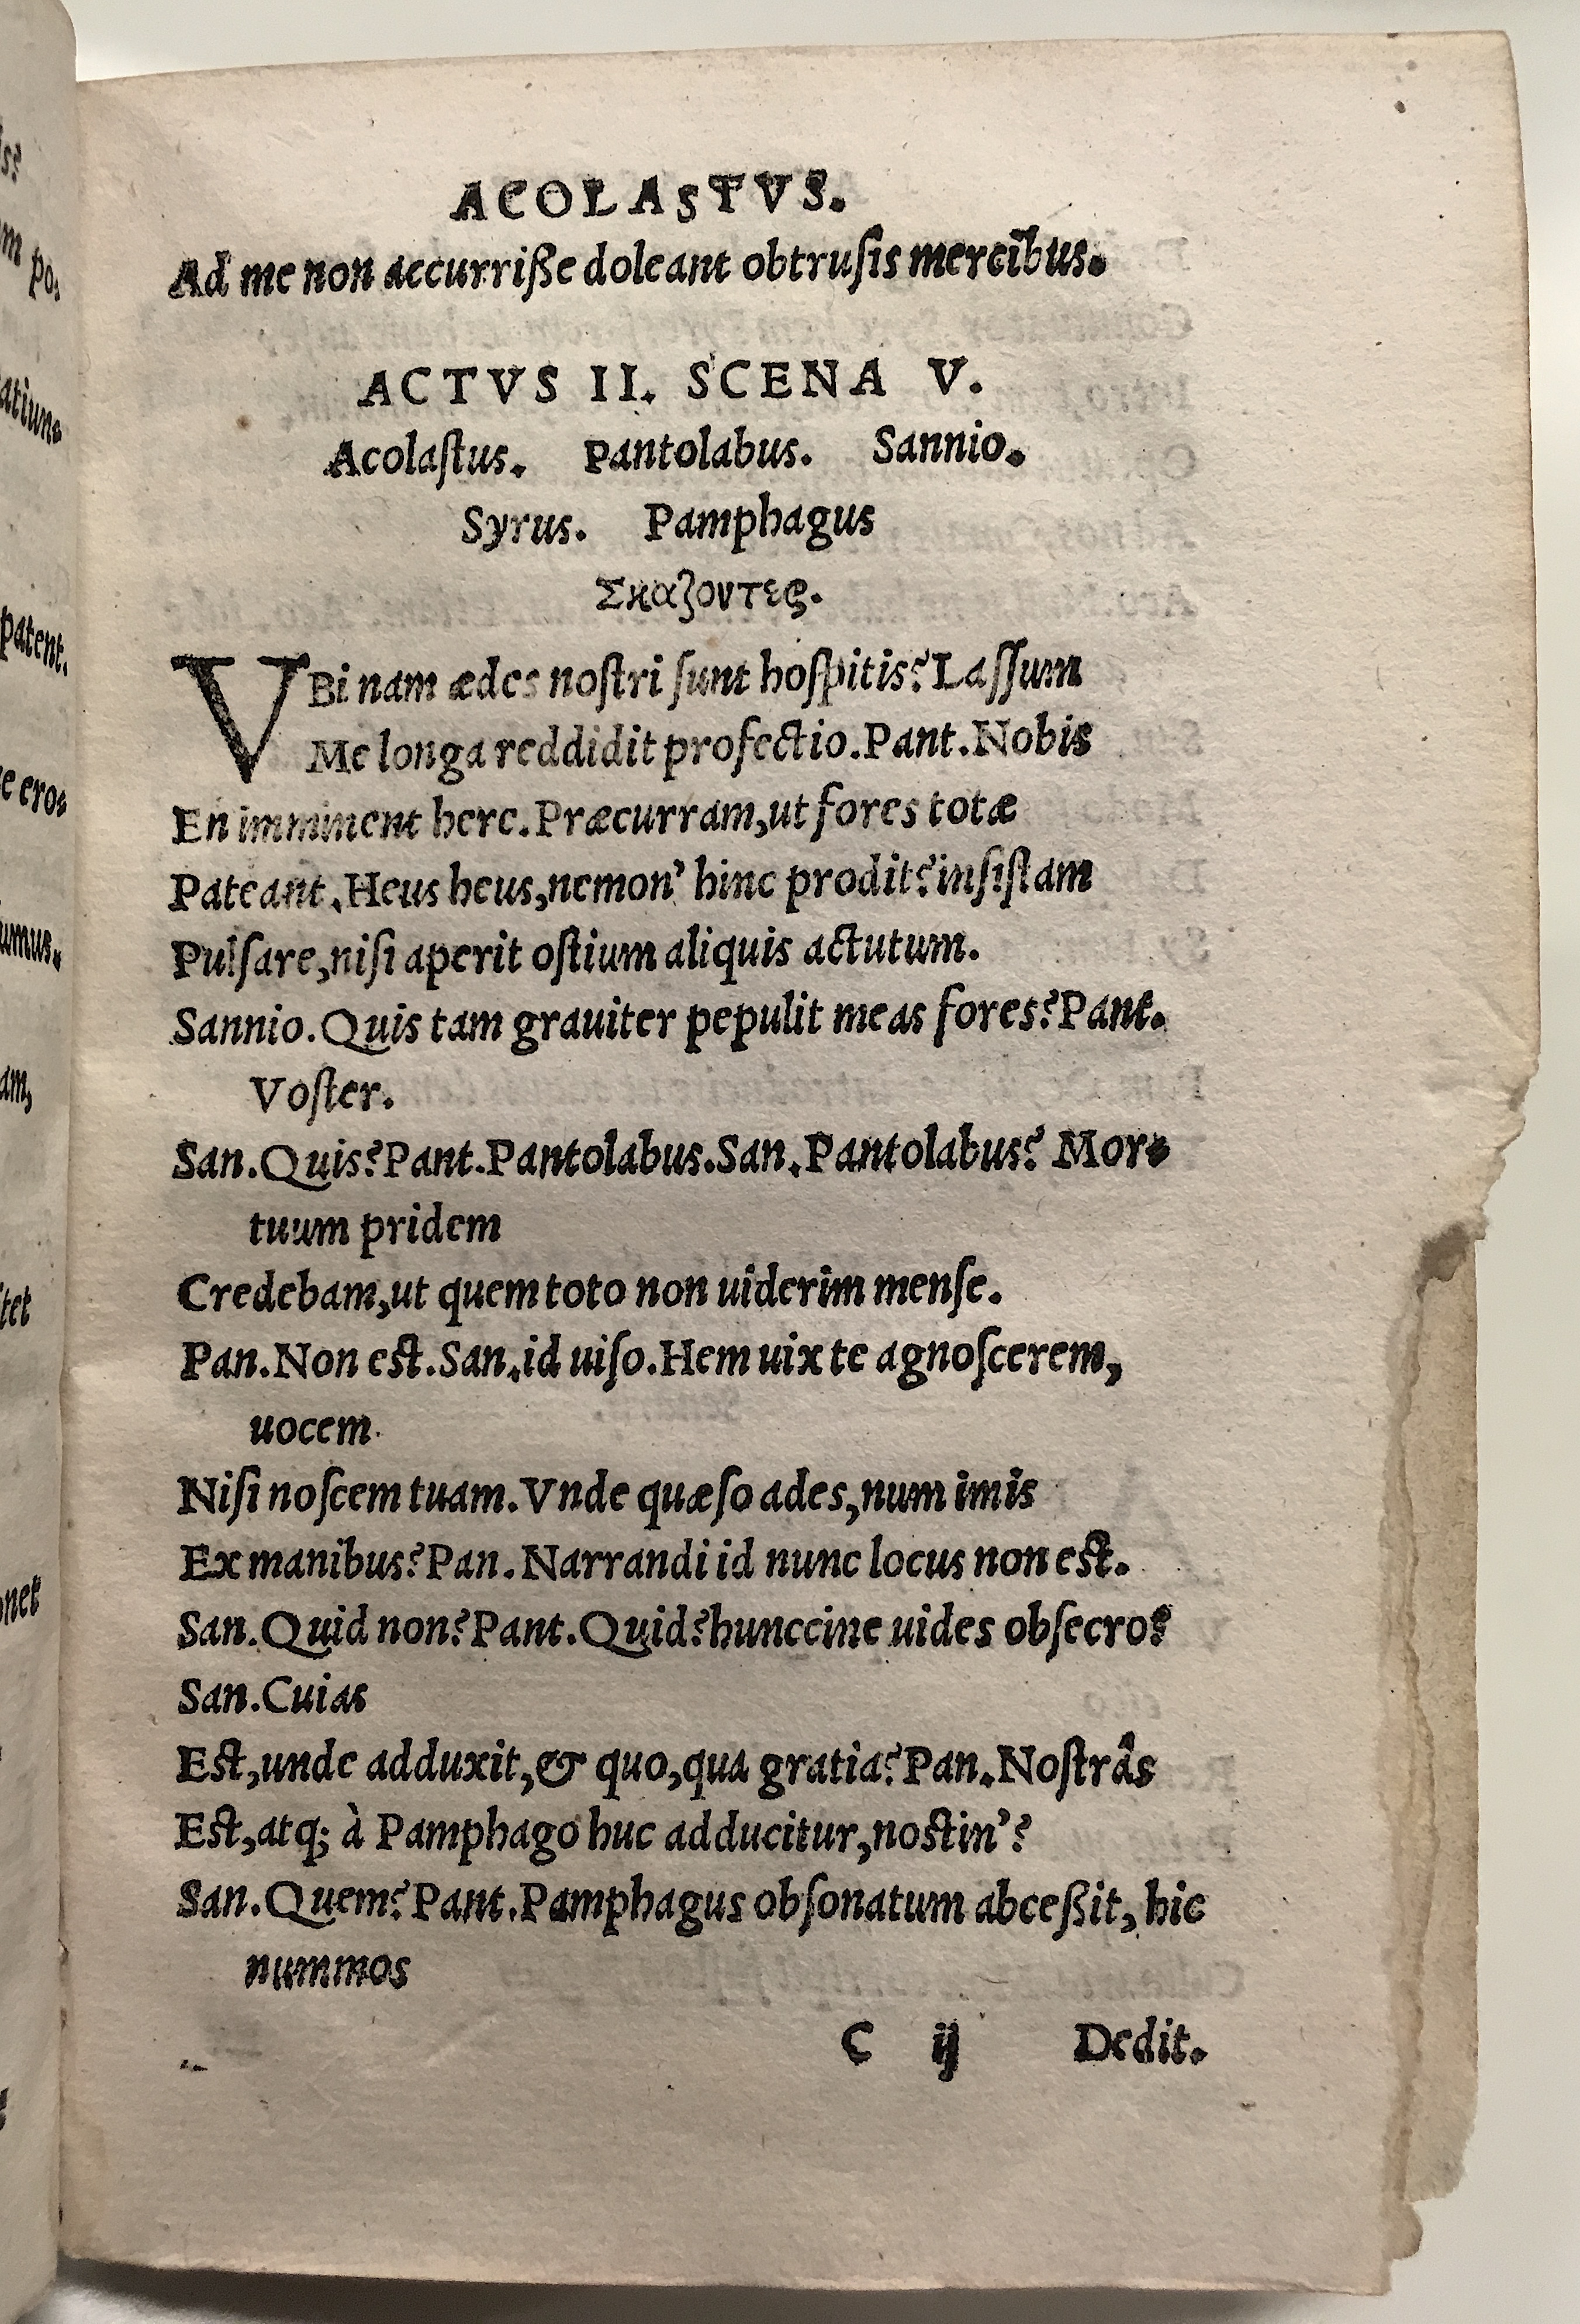 ACOLASTVS.
Ad me non accurriße doleant obtruſis mercibus.
ACTVS II. SCENA V.
Acolaſtus. Pantolabus. Sannio.
Syrus. Pamphagus
Σκαζοντες.
VBi nam ædes noſtri ſunt hoſpitis? Laſſum
Me longa reddidit profectio. Pant. Nobis
En imminent here. Præcurram, ut fores totæ
Pateant. Heus heus, nemon' hinc prodit? inſiſtam
Pulſare, niſi aperit oſtium aliquis actutum.
Sannio. Quis tam grauiter pepulit meas fores? Pant.
Voſter.
San. Quis? Pant. Pantolabus. San. Pantolabus? Mor-
tuum pridem
Credebam, ut quem toto non uiderim menſe.
Pan. Non eſt. San. id uiſo. Hem uix te agnoſcerem,
uocem
Niſi noſcem tuam. Vnde quæſo ades, num imis
Ex manibus? Pan. Narrandi id nunc locus non eſt.
San. Quid non? Pant. Quid? hunccine uides obſecro?
San. Cuias
Eſt, unde adduxit, & quo, qua gratia? Pan. Noſtrâs
Eſt, atq; à Pamphago huc adducitur, noſtin'?
San. Quem? Pant. Pamphagus obſonatum abceßit, hic
nummos
C ij Dedit.
is?
po-
patent.
eros
umus.
am,